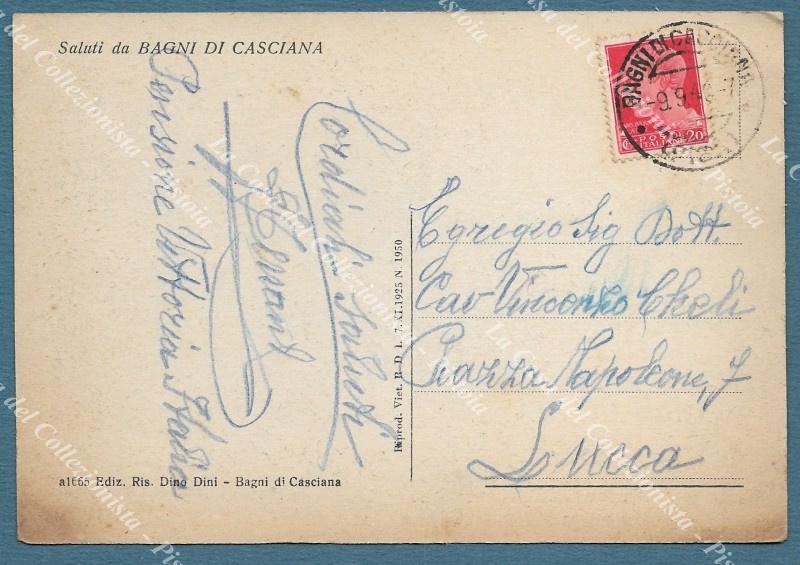 Saluti da BAGNI DI CASCIANA
BAGNI DI CASCIANA
-9.9.4
POSTE ITALIANE
20
Cordiali Saluti
Pensione Vittoria Italia
Egregio Sig Dott.
Cav Vincenzo Cheli
Piazza Napoleone, 7
Lucca
Riprod. Viet. R. D. L. 7. XI.1925 N. 1950
a1665 Ediz. Ris. Dino Dini - Bagni di Casciana
La Casa del Collezionista - Pistoia